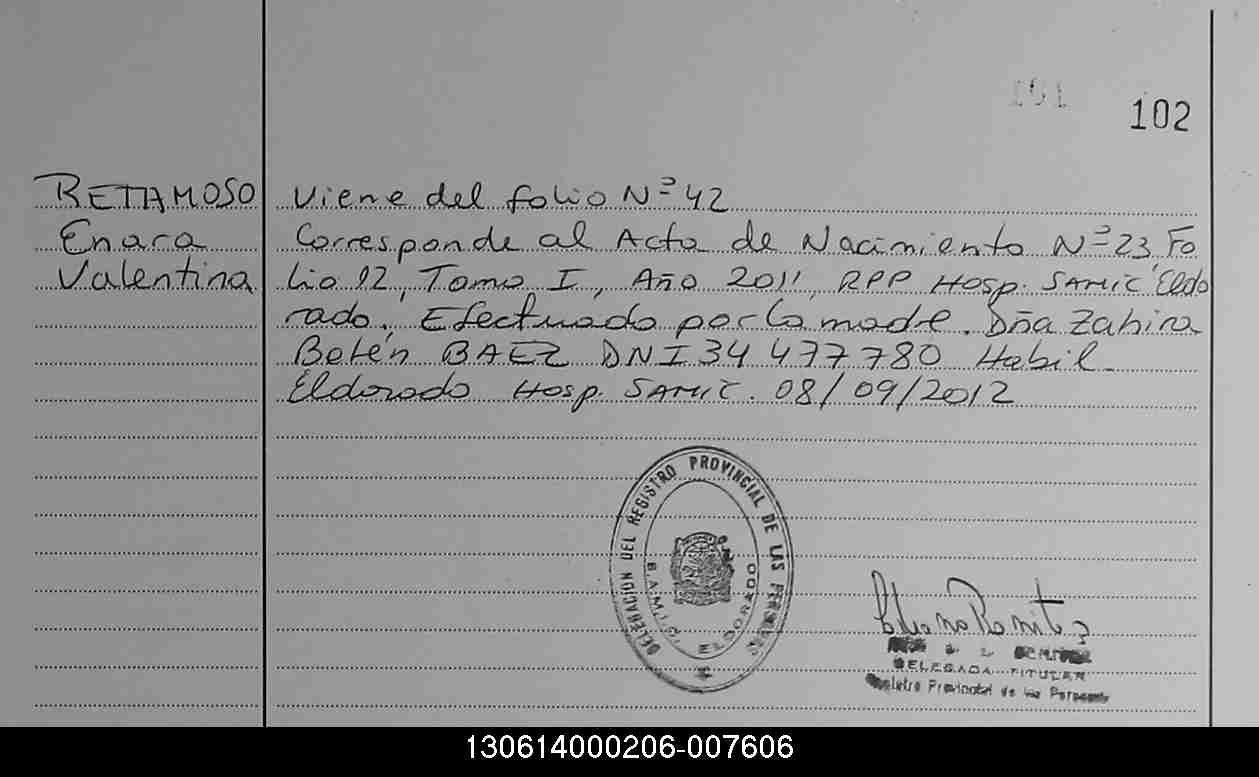 101
102
RETAMOSO Viene del folio Nº 42
Enara Corresponde al Acta de Nacimiento Nº 23, Fo
Valentina lio 12, Tomo I, Año 2011, RPP Hosp. SAMIC Eldo
rado. Efectuado por la madre. Dña Zahira
Belén BAEZ DNI 34 477 780 Habil.
Eldorado Hosp. SAMIC. 08/09/2012
DELEGACION DEL REGISTRO PROVINCIAL DE LAS PERSONAS
S.A.M.I.C. ELDORADO
DELEGADA TITULAR
Registro Provincial de las Personas
130614000206-007606